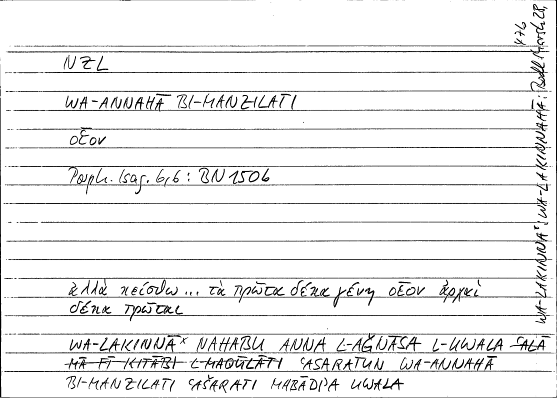 NZL
WA-ANNAHĀ BI-MANZILATI
οἷον
Porph. Isag. 6,6 : BN 1506
ἀλλὰ κείσθω... τὰ πρῶτα δέκα γένη οἷον ἀρχαὶ
δέκα πρῶται
WA-LAKINNĀˣ NAHABU ANNA L-AǦNĀSA L-UWALA ʿALĀ
MĀ FĪ KITĀBI L-MAQŪLĀTI ʿAŠARATUN WA-ANNAHĀ
BI-MANZILATI ʿAŠARATI MABĀDIʾA UWALA
WA-LAKINNĀˣ: WA-LAKINNAHĀ: Bodl. Marsh 28,